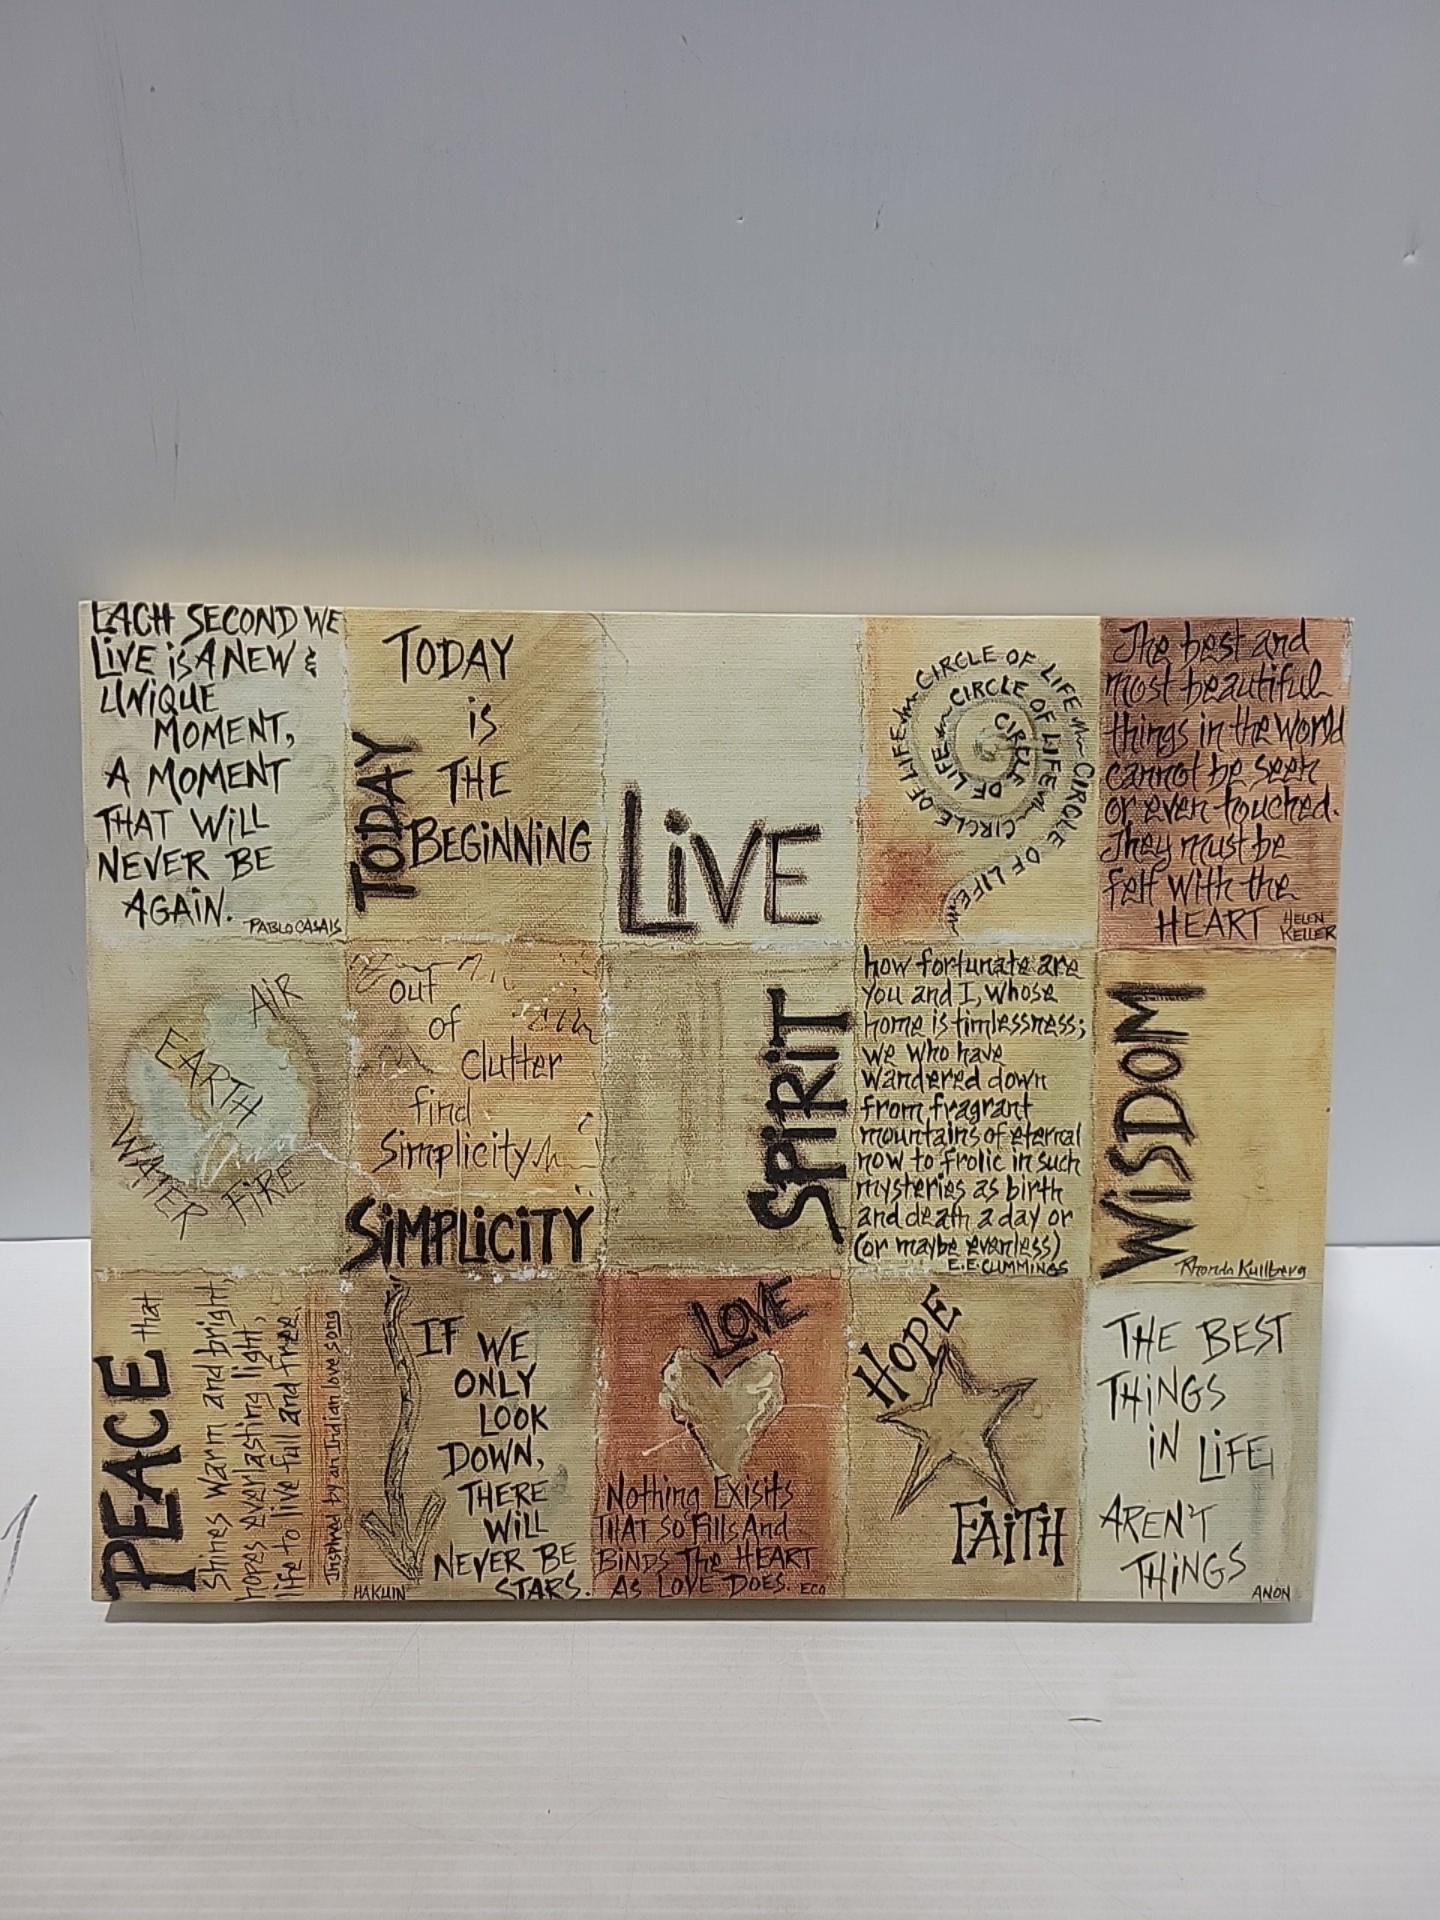 EACH SECOND WE
LIVE IS A NEW &
UNIQUE
MOMENT,
A MOMENT
THAT WILL
NEVER BE
AGAIN.
PABLO CASALS
TODAY
TODAY
is
THE
BEGINNING
LIVE
CIRCLE OF LIFE CIRCLE OF LIFE CIRCLE OF LIFE CIRCLE OF LIFE CIRCLE OF LIFE
The best and
most beautiful
things in the world
cannot be seen
or even touched.
They must be
felt with the
HEART
HELEN
KELLER
AIR
EARTH
WATER
FIRE
out
of
clutter
find
Simplicity
SIMPLICITY
SPIRIT
how fortunate are
you and I, whose
home is timlessness;
we who have
wandered down
from fragrant
mountains of eternal
now to frolic in such
mysteries as birth
and death a day or
(or maybe evenless)
E.E.CUMMINGS
WISDOM
Rhonda Kullberg
PEACE that
Shines warm and bright,
hopes everlasting light,
life to live full and free.
Inspired by an Indian love song
IF WE
ONLY
LOOK
DOWN,
THERE
WILL
NEVER BE
STARS.
HAKUIN
LOVE
Nothing Exisits
THAT SO Fills And
BINDS The HEART
AS LOVE DOES. ECO
HOPE
FAITH
THE BEST
THINGS
IN LIFE,
AREN'T
THINGS
ANON